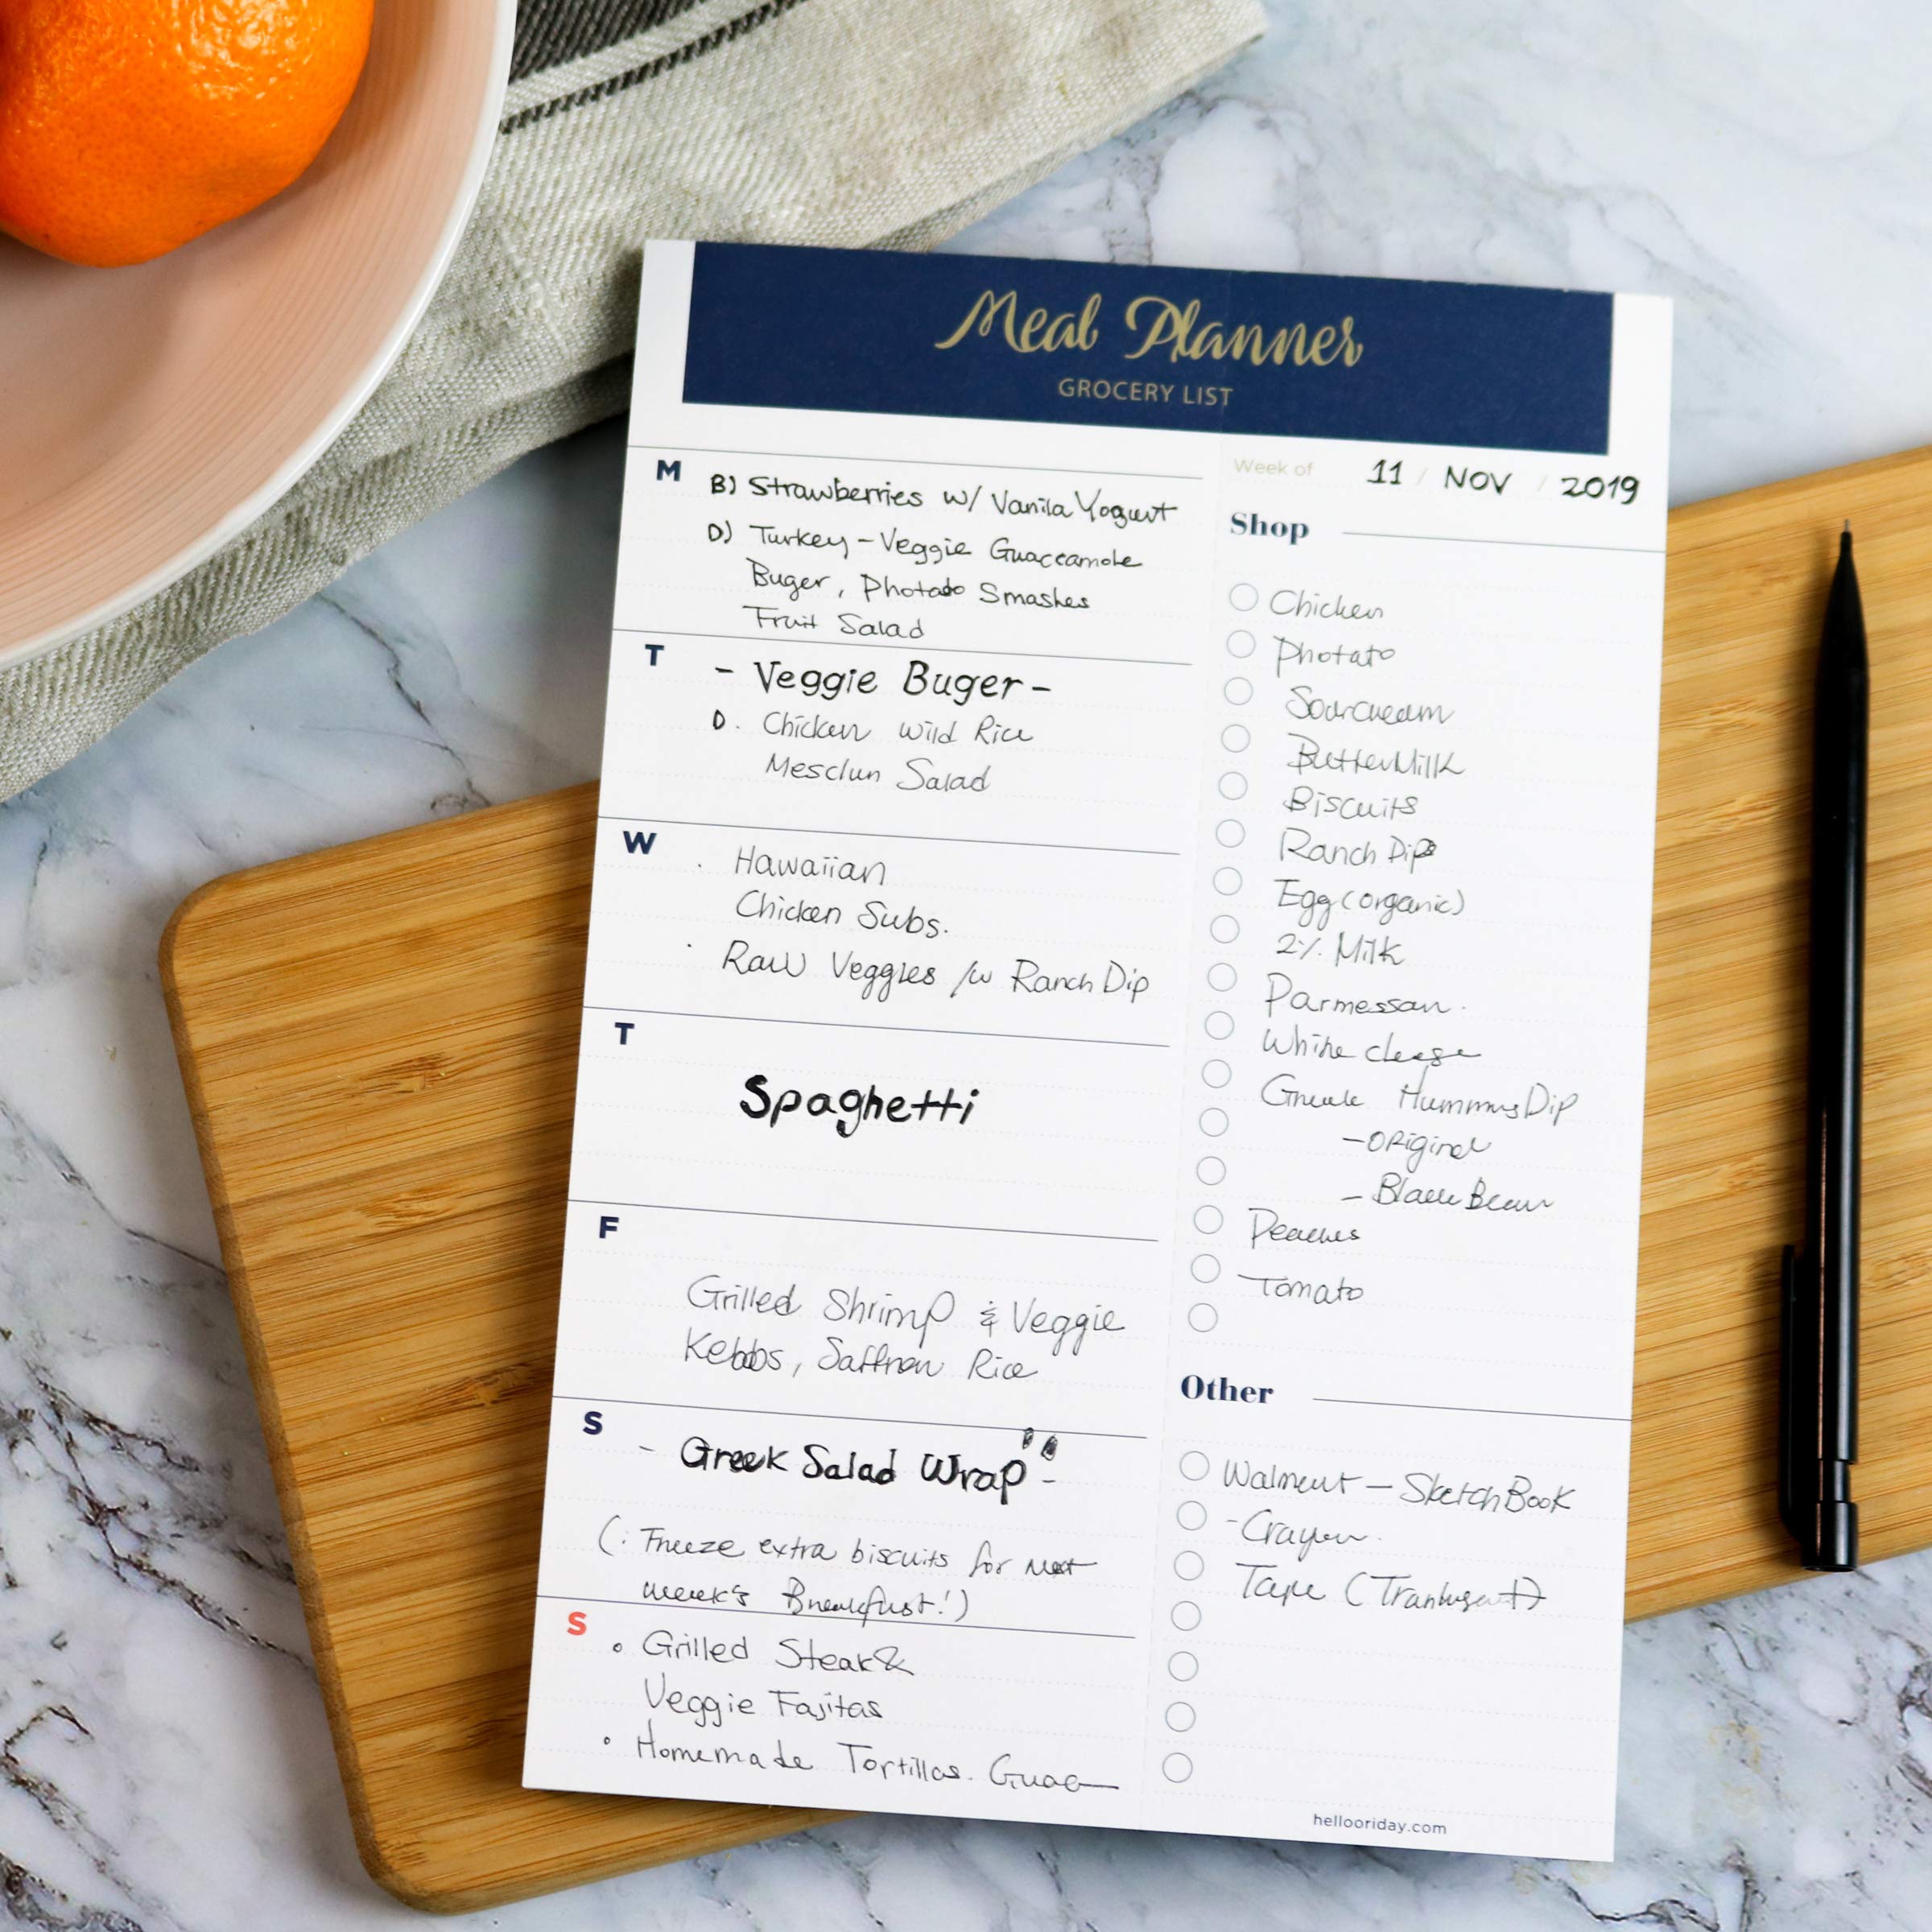 Meal Planner
GROCERY LIST
M
B) Strawberries w/ Vanila Yogurt
D) Turkey - Veggie Guaccamole
Buger, Photato Smashes
Fruit Salad
T
- Veggie Buger -
D. Chicken Wild Rice
Mesclun Salad
W
· Hawaiian
Chicken Subs.
· Raw Veggies /w Ranch Dip
T
Spaghetti
F
Grilled Shrimp & Veggie
Kebbs, Saffron Rice
S
- Greek Salad Wrap" -
(: Freeze extra biscuits for next
week's Breakfast!)
S
• Grilled Steak &
Veggie Fajitas
• Homemade Tortillas. Guac
Week of 11 / NOV / 2019
Shop
Chicken
Photato
Sourcream
ButterMilk
Biscuits
Ranch Dip
Egg (organic)
2% Milk
Parmessan.
White cheese
Greek Hummus Dip
- Original
- Black Bean
Peaches
Tomato
Other
Walmart - SketchBook
- Crayon.
Tape
hellooriday.com